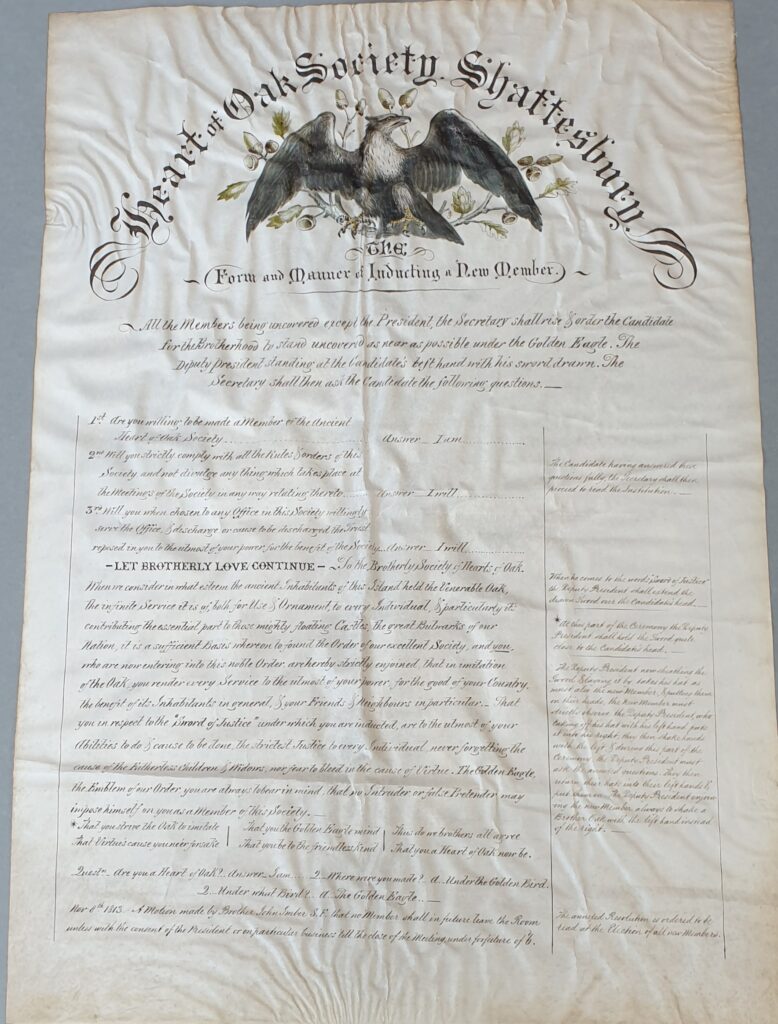 Heart of Oak Society, Shaftesbury.
THE
Form and Manner of Inducting a New Member.
All the Members being uncovered except the President, the Secretary shall rise & order the Candidate
for the Brotherhood to stand uncovered as near as possible under the Golden Eagle. The
Deputy President standing at the Candidate's left hand with his sword drawn. The
Secretary shall then ask the Candidate the following questions.—
1st Are you willing to be made a Member of the Ancient
Heart of Oak Society........ Answer — I am........
2nd Will you strictly comply with all the Rules & Orders of this
Society and not divulge any thing which takes place at
the Meetings of the Society in any way relating thereto...... Answer — I will........
3rd Will you when chosen to any Office in this Society willingly
serve the Office, & discharge or cause to be discharged the Trust
reposed in you to the utmost of your power, for the benefit of the Society. Answer — I will........
The Candidate having answered these
questions fully, the Secretary shall then
proceed to read the Institution.—
— LET BROTHERLY LOVE CONTINUE — To the Brotherly Society of Hearts of Oak.
When we consider in what esteem the ancient Inhabitants of this Island held the Venerable Oak,
the infinite Service it is of, both for Use & Ornament, to every Individual, & particularly it
contributing the essential part to those mighty floating Castles, the great Bulwarks of our
Nation, it is a sufficient Basis whereon to found the Order of our excellent Society, and you,
who are now entering into this noble Order, are hereby strictly enjoined, that in imitation
of the Oak, you render every Service to the utmost of your power, for the good of your Country,
the benefit of its Inhabitants in general, & your Friends & Neighbours in particular.— That
you in respect to the "Sword of Justice" under which you are inducted, are to the utmost of your
Abilities to do & cause to be done, the strictest Justice to every Individual, never forgetting the
cause of the Fatherless Children & Widows, nor fear to bleed in the cause of Virtue. The Golden Eagle,
the Emblem of our Order you are always to bear in mind, that no Intruder or false Pretender may
impose himself on you as a Member of this Society.—
When he comes to the words "Sword of Justice"
the Deputy President shall extend the
drawn Sword over the Candidate's head.—
* At this part of the Ceremony the Deputy
President shall hold the Sword quite
close to the Candidate's head.—
The Deputy President now sheathing the
Sword & laying it by takes his hat as
must also the new Member, & putting them
on their heads, the new Member must
strictly observe the Deputy President, who
taking off his hat with his left hand puts
it into his right; they then shake hands
with the left & during this part of the
Ceremony the Deputy President must
ask the annexed questions. They then
return their hats into their left hands &
put them on. The Deputy President enjoining
the new Member, always to shake a
Brother Oak with the left hand instead
of the right.—
* That you strive the Oak to imitate
That Virtues cause you ne'er forsake
That you the Golden Eagle mind
That you be to the friendless kind
Thus do we brothers all agree
That you a Heart of Oak now be.
Questn. Are you a Heart of Oak? Answer I am..... Q. Where were you made? A. Under the Golden Bird.
Q. Under what Bird?.. A. The Golden Eagle..—
Nov 8th 1813.- A Motion made by Brother John Imber S.P. that no Member shall in future leave the Room
unless with the consent of the President or on particular business till the close of the Meeting, under forfeiture of
The annexed Resolution is ordered to be
read at the Election of all new Members.